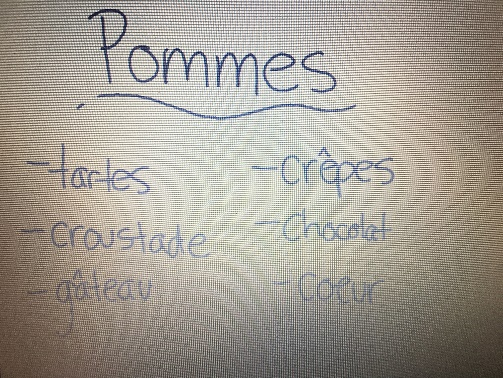 Pommes
- tartes
- croustade
- gâteau
- Crêpes
- Chocolat
- Coeur